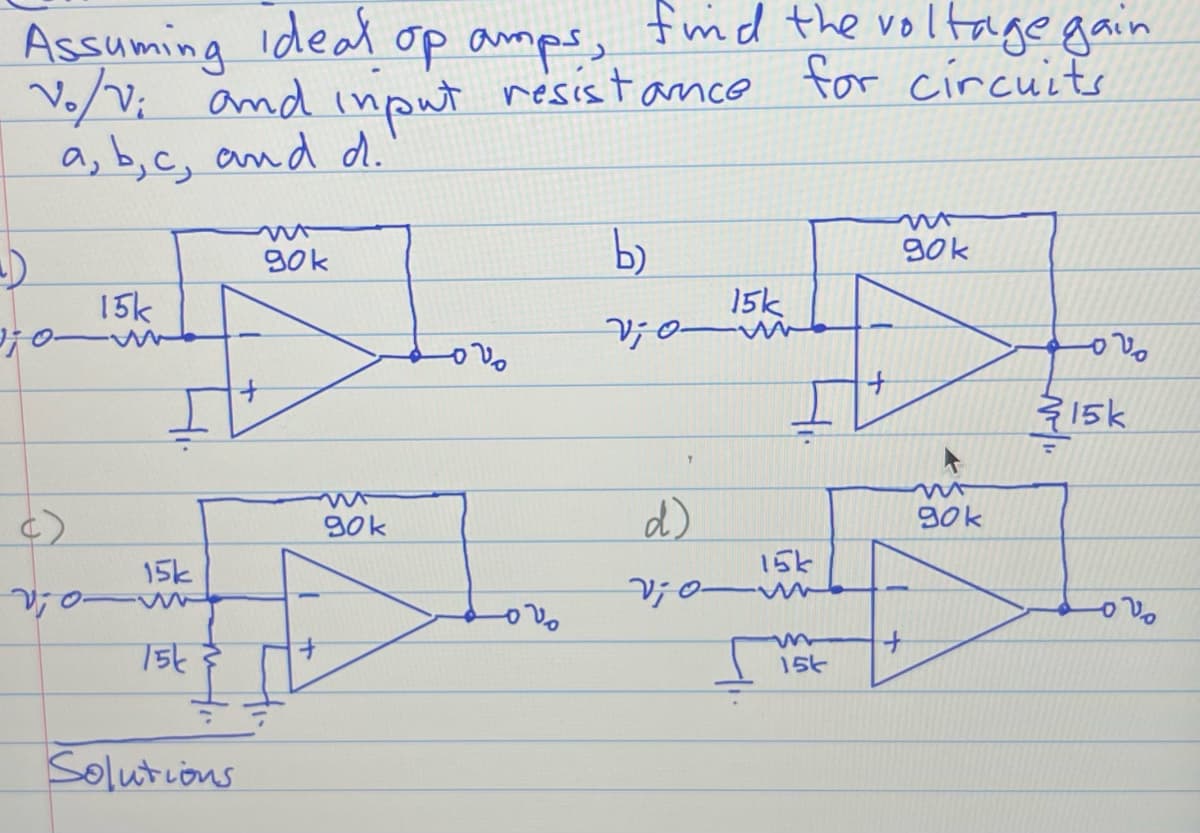 Assuming ideal op amps, find the voltage gain
vo/vi and input resistance for circuits
a, b, c, and d.
90k
15k
vo
-
+
b)
90k
15k
vi
vo
-
+
15k
c)
90k
15k
vi
vo
-
+
15k
d)
90k
15k
vi
vo
-
+
15k
Solutions